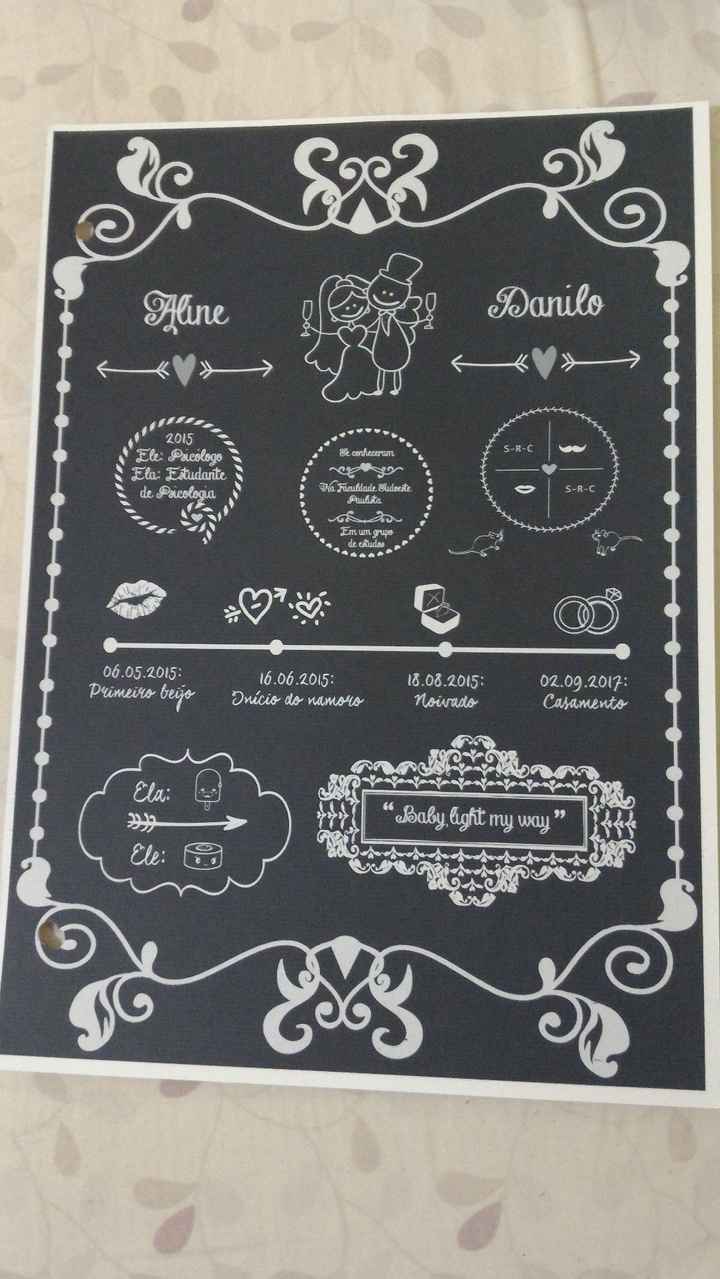 Aline
Danilo
2015
Ele: Psicólogo
Ela: Estudante
de Psicologia
Se conheceram
Via Faculdade Sudoeste
Paulista
Em um grupo
de estudos
S-R-C
S-R-C
06.05.2015:
Primeiro beijo
16.06.2015:
Início do namoro
18.08.2015:
Noivado
02.09.2017:
Casamento
Ela:
Ele:
“Baby, light my way”